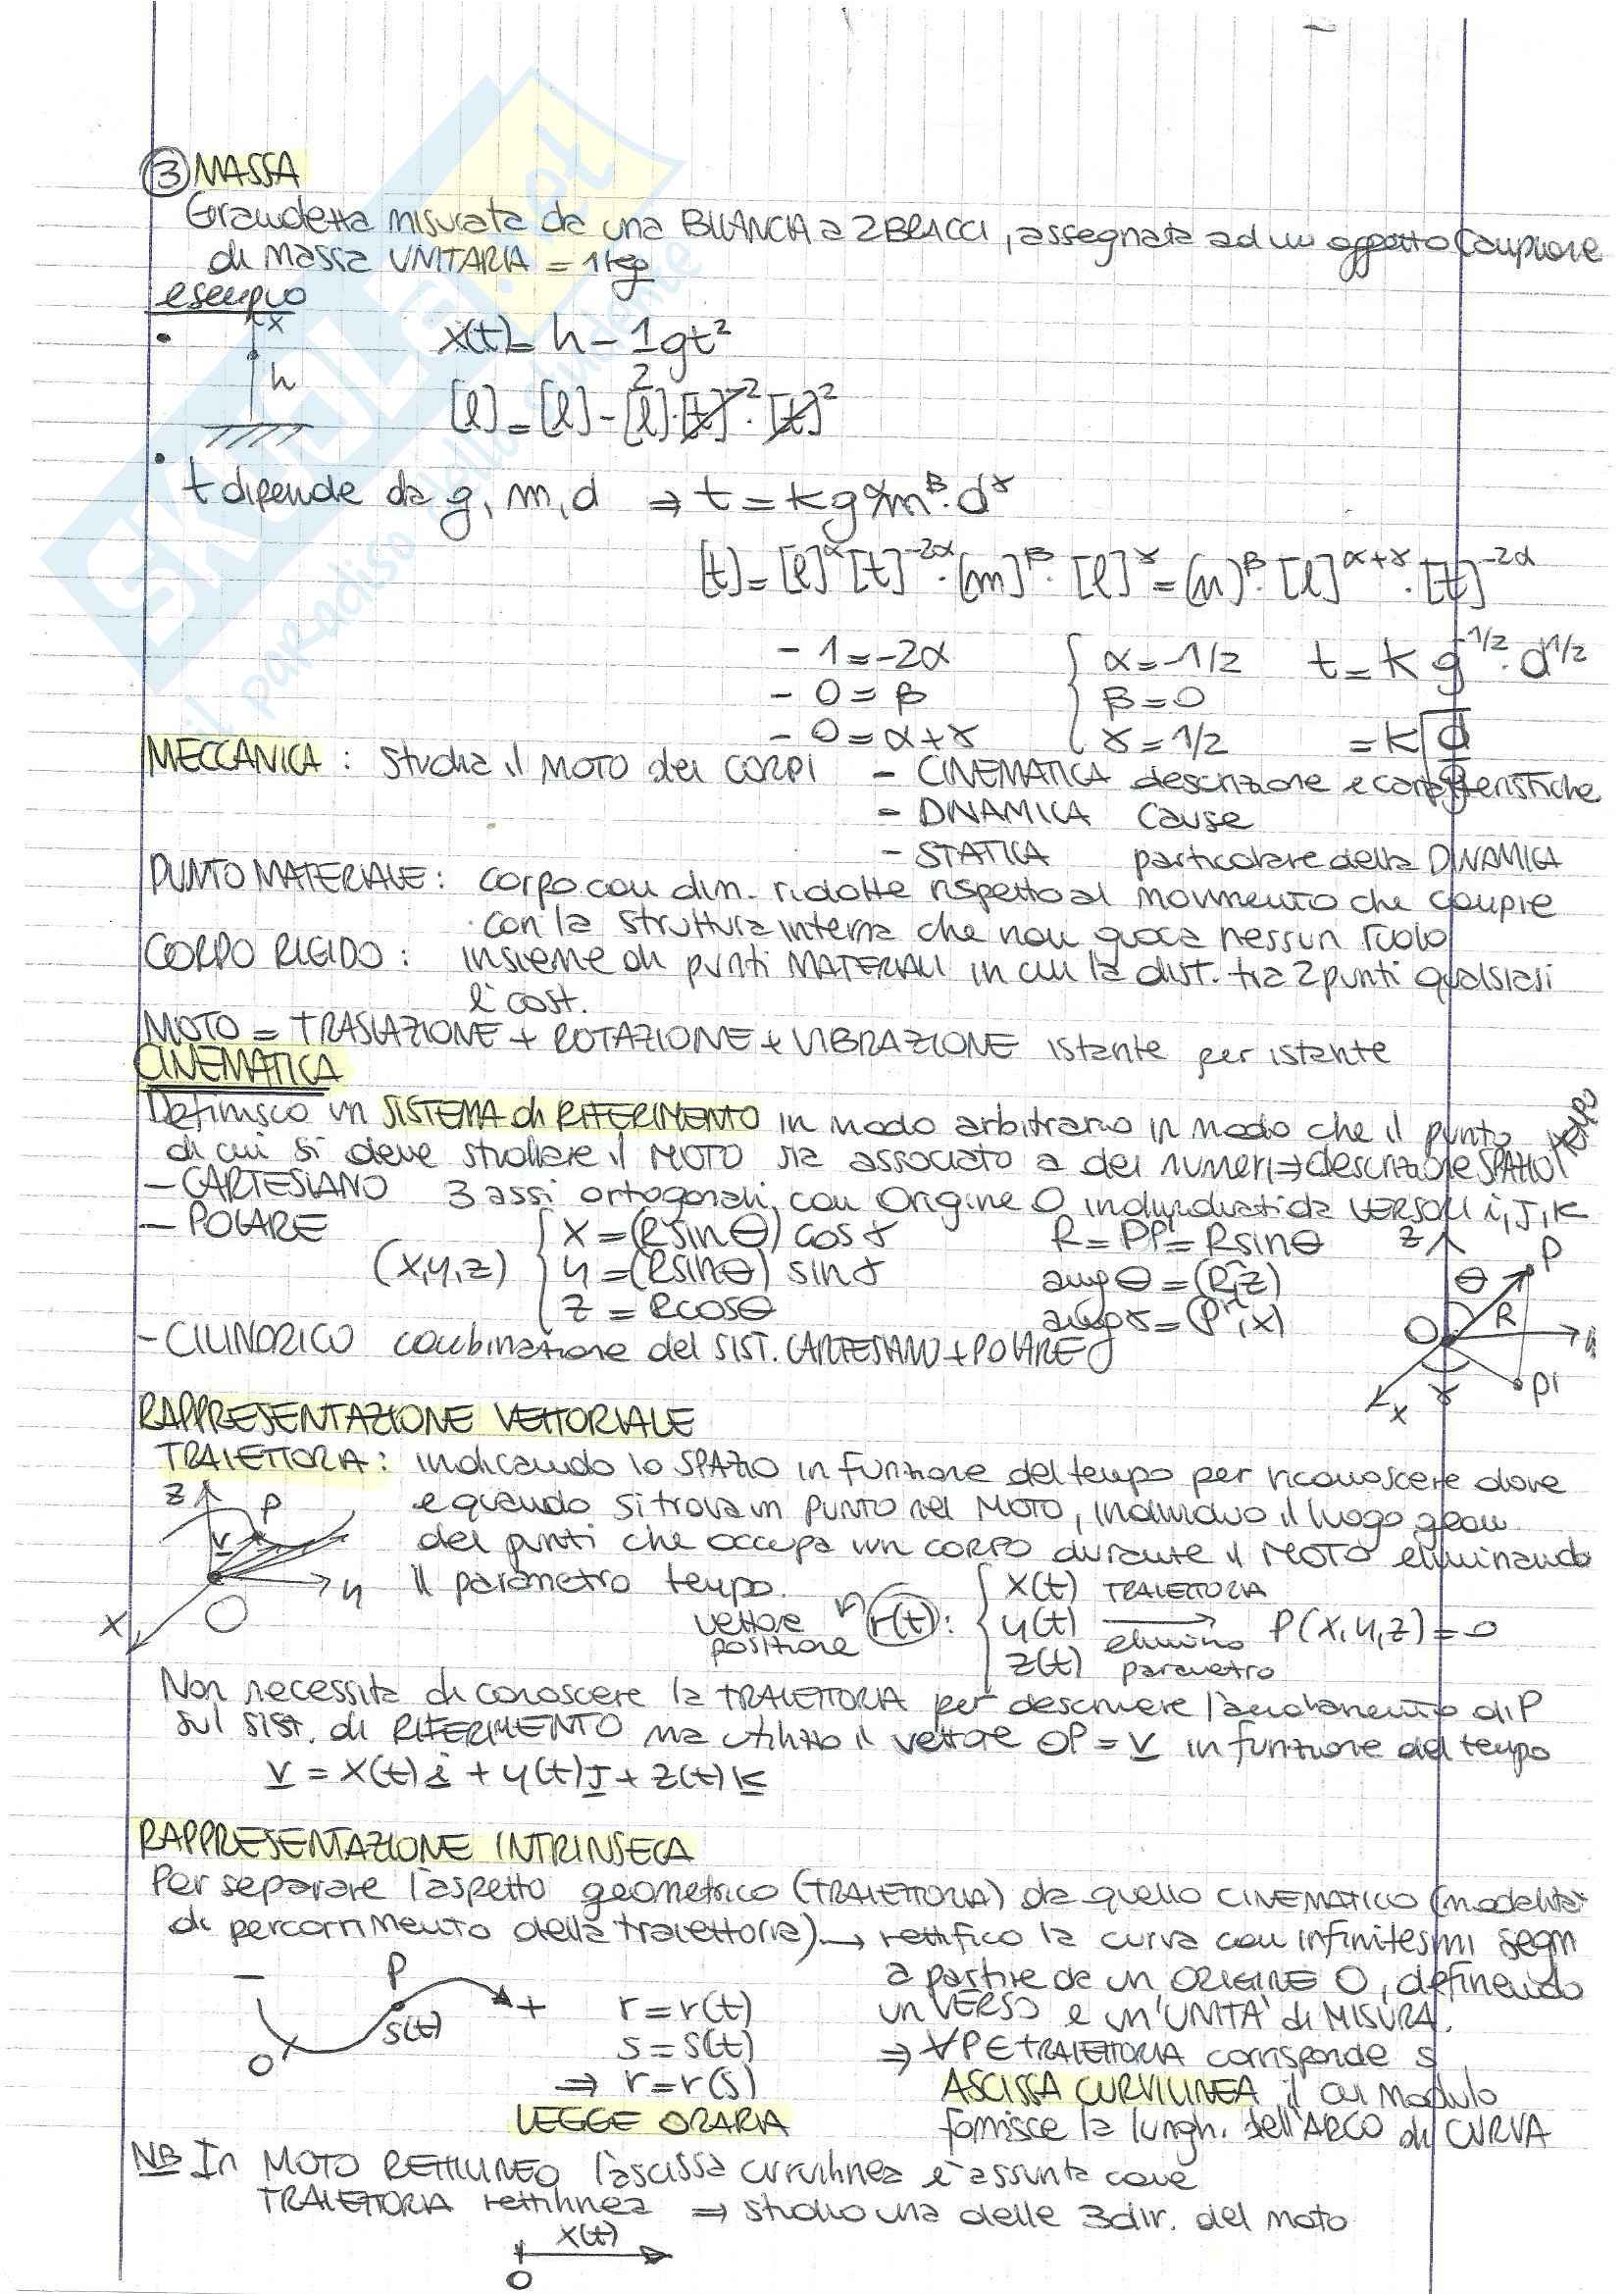 ③ MASSA
Grandezza misurata da una BILANCIA a 2 BRACCI, assegnata ad un oggetto Campione
di massa UNITARIA = 1 kg
esempio
x
h
x(t) = h - 1/2 gt²
[l] = [l] - [l]·[t]⁻²·[t]²
t dipende da g, m, d ⇒ t = k g^α m^β · d^γ
[t] = [l]^α [t]^-2α · [m]^β · [l]^γ = [m]^β · [l]^α+γ · [t]^-2α
- 1 = -2α { α = -1/2 t = k g^-1/2 · d^1/2
- 0 = β β = 0
- 0 = α + γ γ = 1/2 = k √d/g
MECCANICA : Studia il MOTO dei CORPI - CINEMATICA descrizione e caratteristiche
- DINAMICA Cause
- STATICA particolare della DINAMICA
PUNTO MATERIALE : corpo con dim. ridotte rispetto al movimento che compie
con la struttura interna che non gioca nessun ruolo
CORPO RIGIDO : insieme di punti MATERIALI in cui la dist. tra 2 punti qualsiasi
è cost.
MOTO = TRASLAZIONE + ROTAZIONE + VIBRAZIONE istante per istante
CINEMATICA
Definisco un SISTEMA di RIFERIMENTO in modo arbitrario in modo che il punto
di cui si deve studiare il MOTO sia associato a dei numeri ⇒ descrizione SPAZIO TEMPO
- CARTESIANO 3 assi ortogonali con origine O individuati da VERSORI i, J, K
- POLARE
(x,y,z) { x = (R sin θ) cos γ R = PP' = R sin θ
y = (R sin θ) sin γ ang θ = (R,z)
z = R cos θ ang γ = (P',x)
z P θ R O y x γ P'
- CILINDRICO combinazione del SIST. CARTESIANO + POLARE
RAPPRESENTAZIONE VETTORIALE
TRAIETTORIA : indicando lo SPAZIO in funzione del tempo per riconoscere dove
e quando si trova un PUNTO nel MOTO, individuo il luogo geom
dei punti che occupa un CORPO durante il MOTO eliminando
il parametro tempo.
z P v y x O
vettore posizione r(t) : { x(t) y(t) z(t) TRAIETTORIA elimino parametro P(x,y,z) = 0
Non necessita di conoscere la TRAIETTORIA per descrivere l'andamento di P
sul SIST. di RIFERIMENTO ma utilizzo il vettore OP = v in funzione del tempo
v = x(t) i + y(t) J + z(t) K
RAPPRESENTAZIONE INTRINSECA
Per separare l'aspetto geometrico (TRAIETTORIA) da quello CINEMATICO (modalità
di percorrimento della traiettoria) → rettifico la curva con infinitesimi segm
a partire da un ORIGINE O, definendo
un VERSO e un'UNITA' di MISURA.
- P + s(t) O
r = r(t)
s = s(t) ⇒ ∀P∈TRAIETTORIA corrisponde s
⇒ r = r(s) ASCISSA CURVILINEA il cui modulo
LEGGE ORARIA fornisce la lungh. dell'ARCO di CURVA
NB In MOTO RETTILINEO l'ascissa curvilinea è assunta come
TRAIETTORIA rettilinea ⇒ studio una delle 3 dir. del moto
x(t)
O
SKUOLA.net
il paradiso dello studente